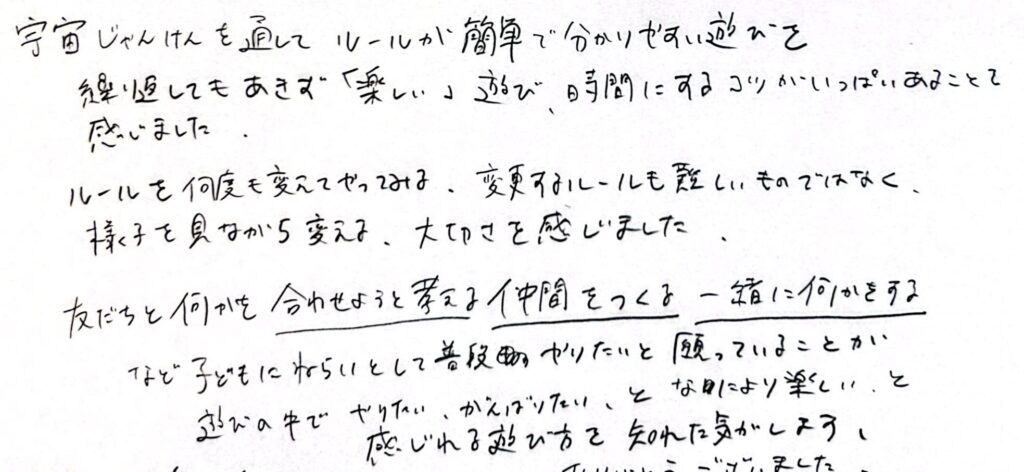 宇宙じゃんけんを通して ルールが簡単で分かりやすい遊びを
繰り返してもあきず「楽しい」遊び、時間にするコツがいっぱいあることを
感じました.
ルールを何度も変えてやってみる、変更するルールも難しいものではなく、
様子を見ながら変える、大切さを感じました.
友だちと何かを合わせようと考える 仲間をつくる 一緒に何かをする
など子どもにねらいとして普段 やりたいと願っていることが
遊びの中で やりたい、がんばりたい、と なにより楽しい、と
感じれる遊び方を知れた気がします、
ありがとうございました.